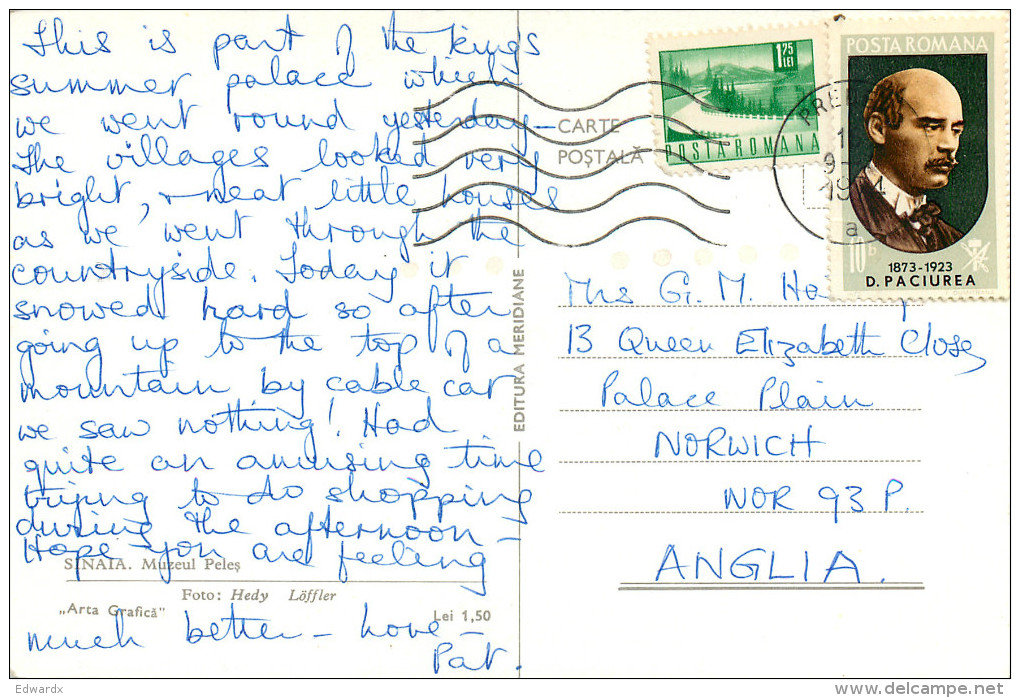 This is part of the kings
summer palace which
we went round yesterday –
The villages looked very
bright, + neat little houses
as we went through the
countryside. Today it
snowed hard so after
going up to the top of a
mountain by cable car
we saw nothing! Had
quite an amusing time
trying to do shopping
during the afternoon –
Hope you are feeling
much better – Love –
Pat.
SINAIA. Muzeul Peleș
Foto: Hedy Löffler
„Arta Grafică"
Lei 1,50
EDITURA MERIDIANE
CARTE
POȘTALĂ
1,75
LEI
POSTA ROMANA
POSTA ROMANA
10B
1873-1923
D. PACIUREA
PRE
Mrs G. M.
13 Queen Elizabeth Close
Palace Plain
NORWICH
NOR 93 P.
ANGLIA.
Edwardx
www.delcampe.net